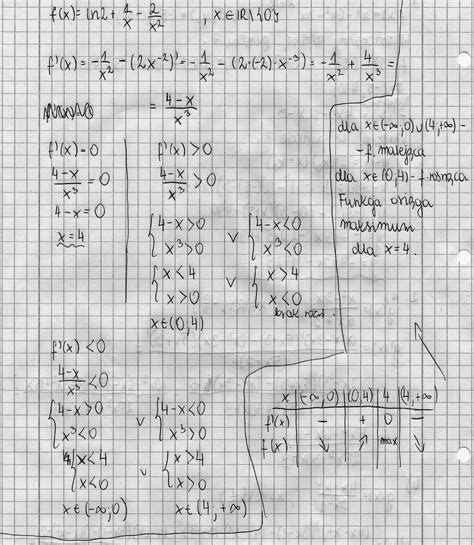 f(x) = ln2 + 1/x - 2/x² , x ∈ ℝ\{0}
f'(x) = -1/x² - (2x⁻²)' = -1/x² - (2·(-2)·x⁻³) = -1/x² + 4/x³ =
= (4-x)/x³
f'(x) = 0
(4-x)/x³ = 0
4-x = 0
x = 4
f'(x) > 0
(4-x)/x³ > 0
{4-x>0 ∨ {4-x<0
{x³>0 {x³<0
{x<4 ∨ {x>4
{x>0 {x<0
x∈(0,4) brak rozw.
dla x∈(-∞;0)∪(4;+∞) -
- f. malejąca
dla x∈(0;4) - f. rosnąca
Funkcja osiąga
maksimum
dla x=4.
f'(x) < 0
(4-x)/x³ < 0
{4-x>0 ∨ {4-x<0
{x³<0 {x³>0
{x<4 ∨ {x>4
{x<0 {x>0
x∈(-∞;0) x∈(4,+∞)
x | (-∞,0) | (0,4) | 4 | (4,+∞)
f'(x) | - | + | 0 | -
f(x) | ↘ | ↗ | max | ↘